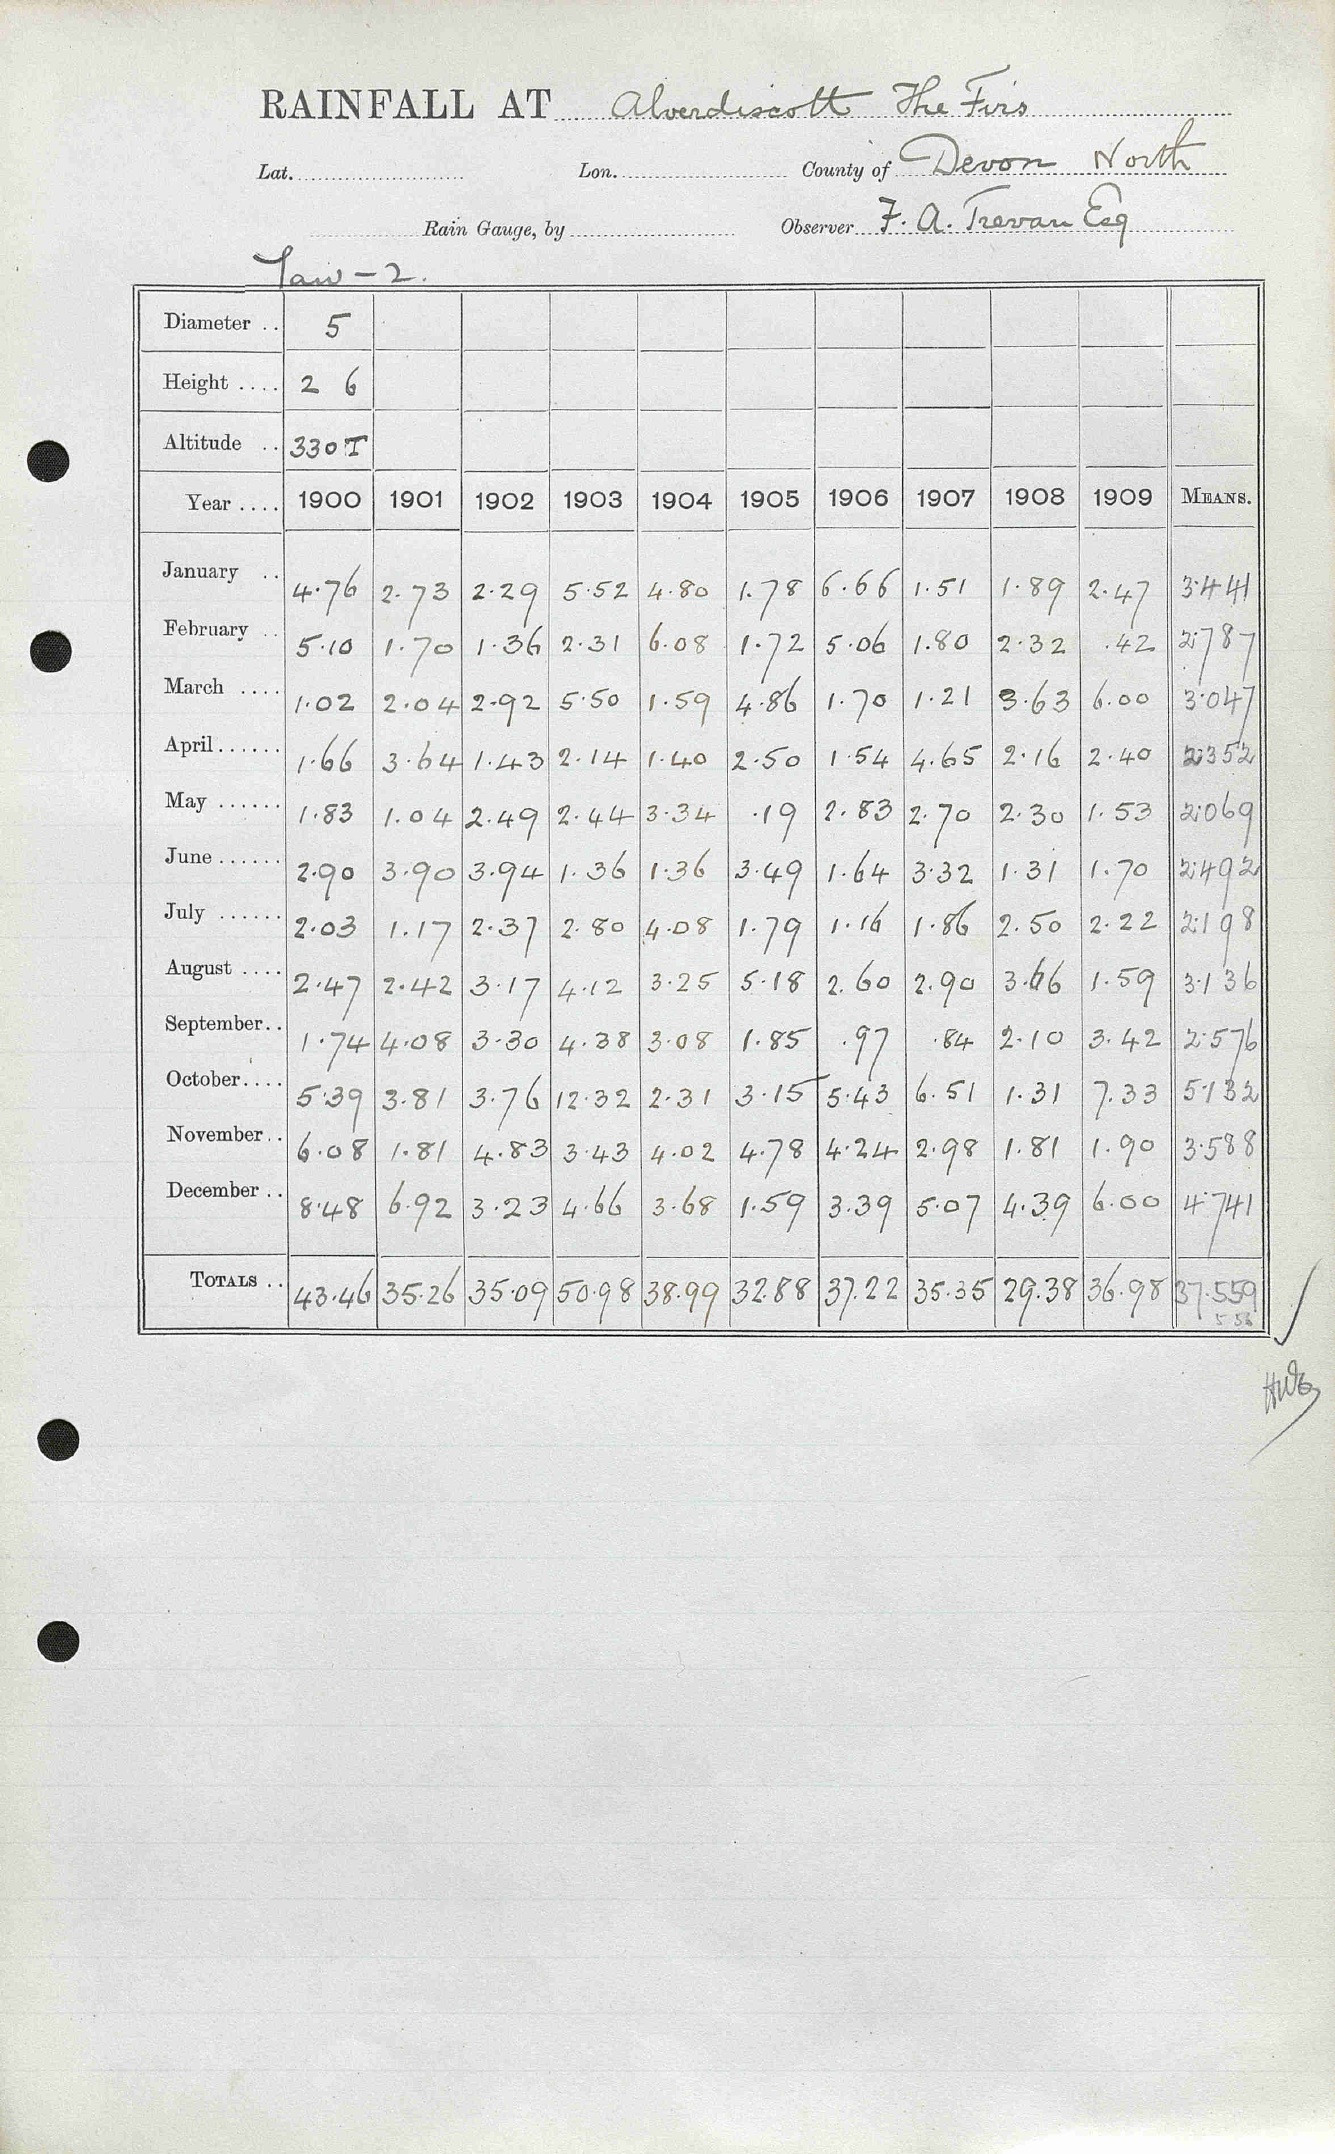 RAINFALL AT Alverdiscott The Firs
Lat. Lon. County of Devon North
Rain Gauge, by Observer F. A. Trevan Esq
Taw-2.
Diameter .. 5
Height .... 2 6
Altitude .. 330 T
Year .... 1900 1901 1902 1903 1904 1905 1906 1907 1908 1909 MEANS.
January .. 4.76 2.73 2.29 5.52 4.80 1.78 6.66 1.51 1.89 2.47 3.441
February .. 5.10 1.70 1.36 2.31 6.08 1.72 5.06 1.80 2.32 .42 2.787
March .... 1.02 2.04 2.92 5.50 1.59 4.86 1.70 1.21 3.63 6.00 3.047
April...... 1.66 3.64 1.43 2.14 1.40 2.50 1.54 4.65 2.16 2.40 2.352
May ...... 1.83 1.04 2.49 2.44 3.34 .19 2.83 2.70 2.30 1.53 2.069
June...... 2.90 3.90 3.94 1.36 1.36 3.49 1.64 3.32 1.31 1.70 2.492
July ...... 2.03 1.17 2.37 2.80 4.08 1.79 1.16 1.86 2.50 2.22 2.198
August .... 2.47 2.42 3.17 4.12 3.25 5.18 2.60 2.90 3.66 1.59 3.136
September.. 1.74 4.08 3.30 4.38 3.08 1.85 .97 .84 2.10 3.42 2.576
October.... 5.39 3.81 3.76 12.32 2.31 3.15 5.43 6.51 1.31 7.33 5.132
November.. 6.08 1.81 4.83 3.43 4.02 4.78 4.24 2.98 1.81 1.90 3.588
December .. 8.48 6.92 3.23 4.66 3.68 1.59 3.39 5.07 4.39 6.00 4.741
TOTALS .. 43.46 35.26 35.09 50.98 38.99 32.88 37.22 35.35 29.38 36.98 37.559